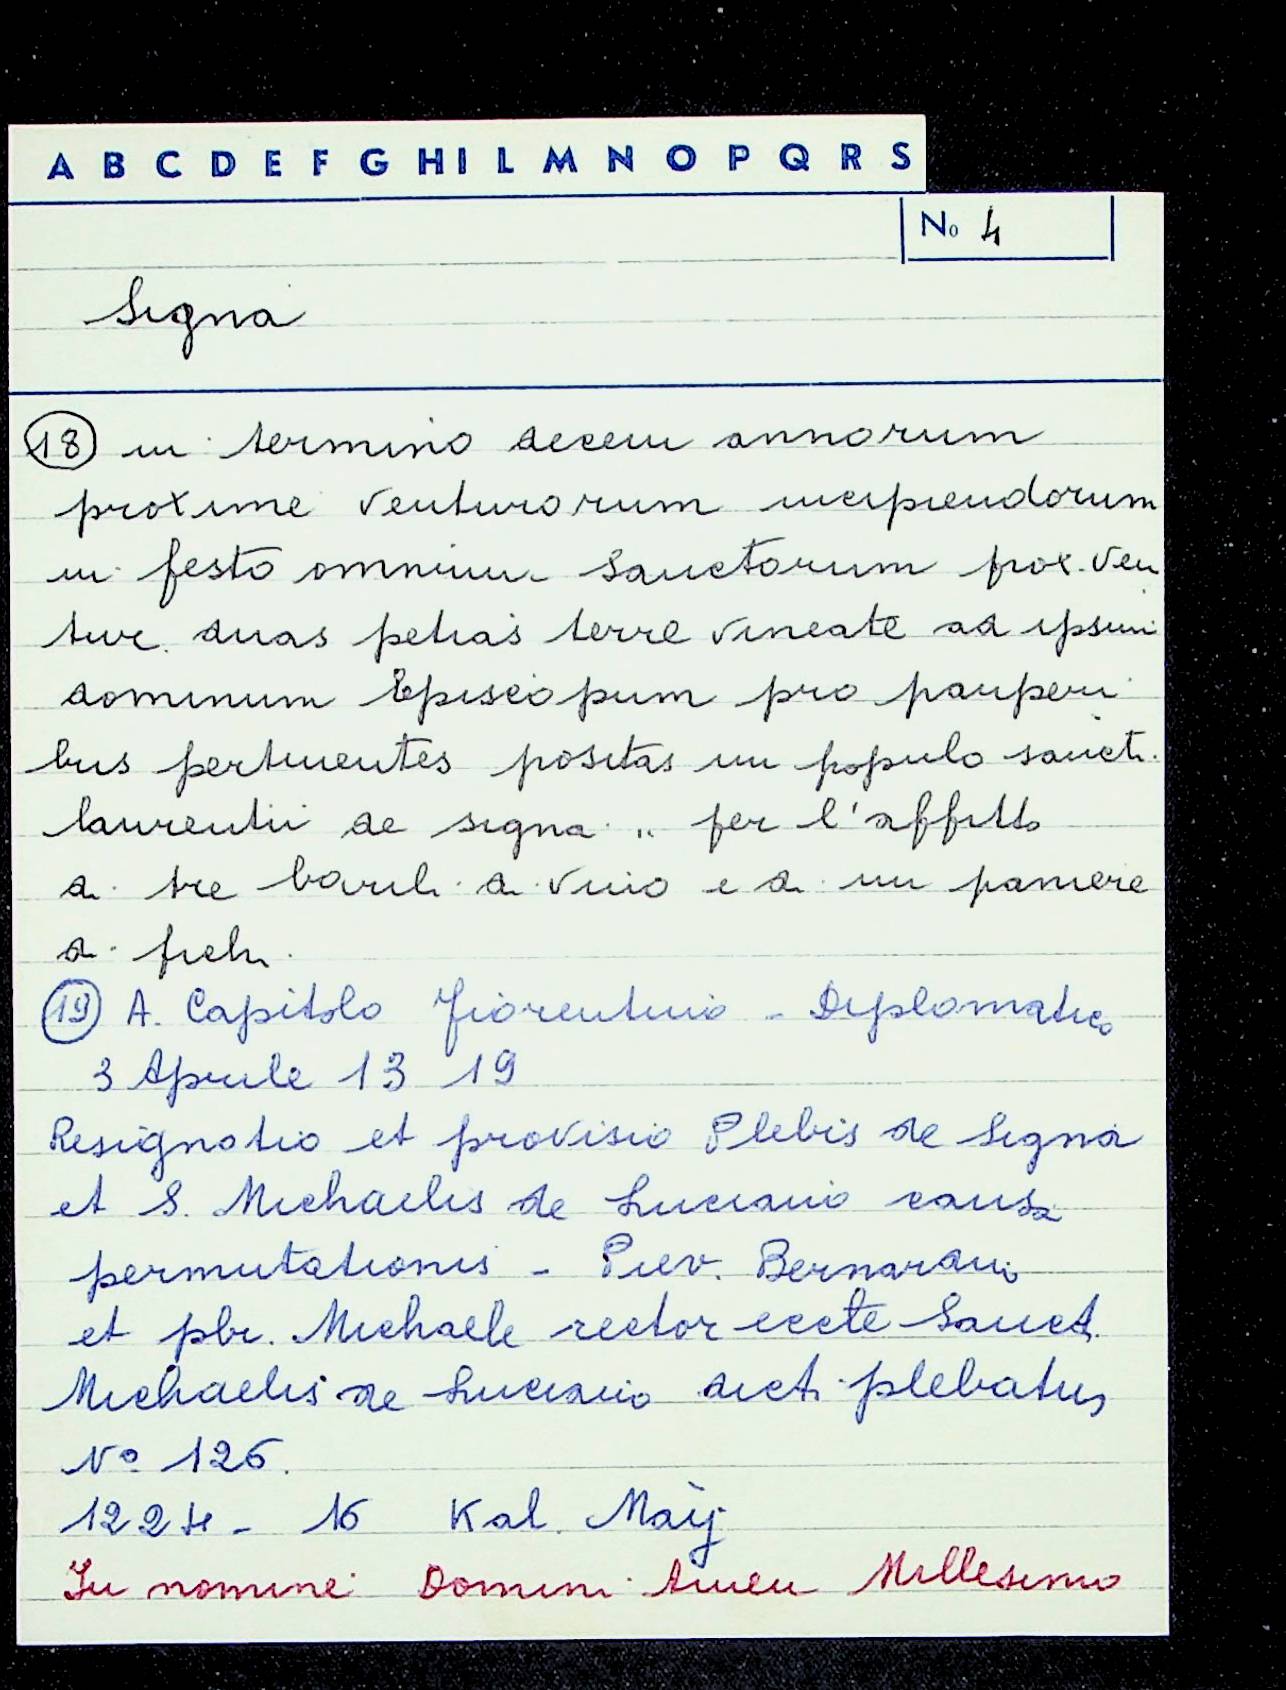 A B C D E F G H I L M N O P Q R S
No 4
Signa
18 in termino decem annorum
proxime venturorum incipiendorum
in festo omnium Sanctorum prox. ven
tur. duas petias terre vineate ad ipsum
dominum Episcopum pro pauperi
bus pertinentes positas in populo sancti
laurentii de signa „ per l'affitto
di tre barili di vino e di un paniere
di fichi.
19 A. Capitolo Fiorentino - Diplomatico
3 Aprile 1319
Resignatio et provisio Plebis de Signa
et S. Michaelis de Luciano causa
permutationis - Piev. Bernardini
et pbr. Michaele rector eccte Sanct.
Michaelis de Luciano dicti plebatus
No 126.
1224 - 16 Kal. Maij
In nomine Domini Amen Millesimo